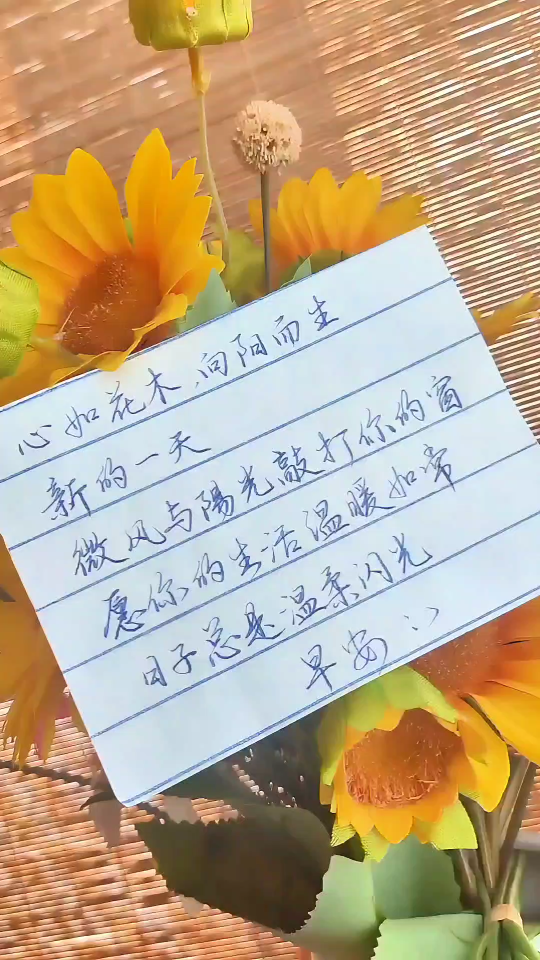 心如花木，向阳而生
新的一天
微风与陽光敲打你的窗
愿你的生活温暖如常
日子总是温柔闪光
早安 :)